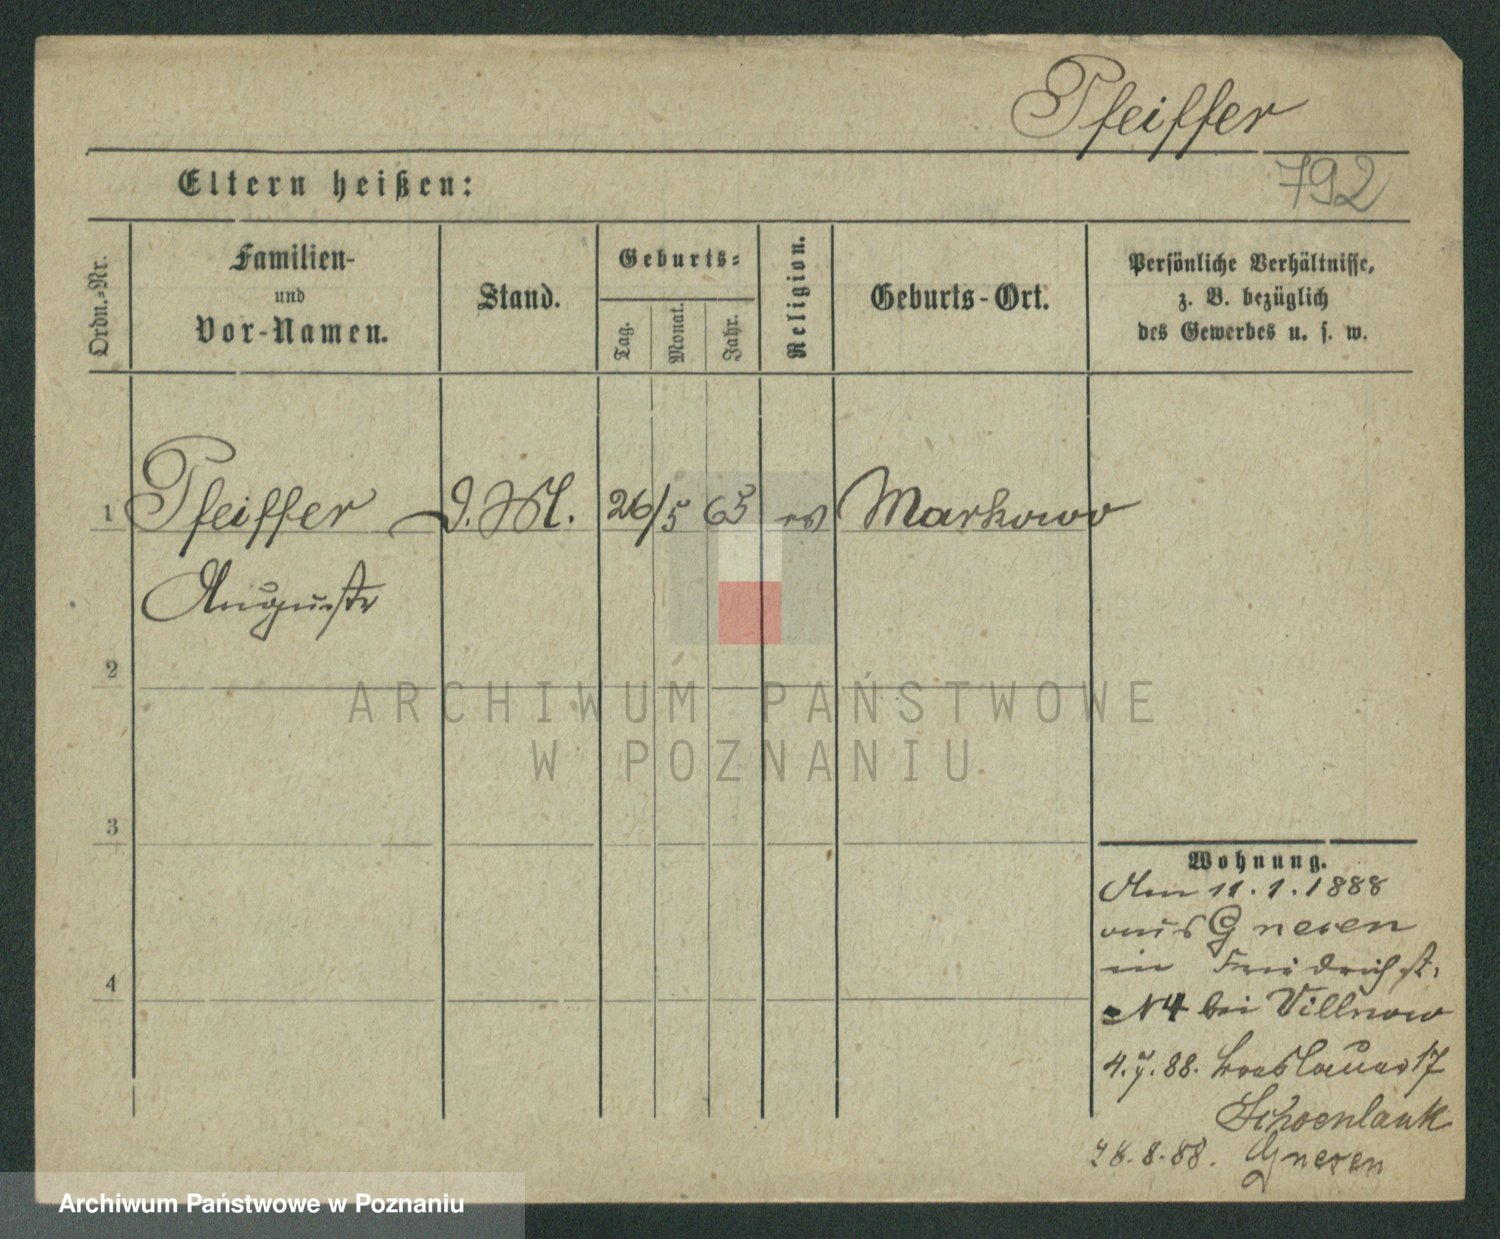 Pfeiffer
792
Eltern heißen:
Ordn.-Nr.
Familien-
und
Vor-Namen.
Stand.
Geburts-
Tag.
Monat.
Jahr.
Religion.
Geburts-Ort.
Persönliche Verhältnisse,
z. B. bezüglich
des Gewerbes u. s. w.
1 Pfeiffer D.M. 26/5 65 ev Markowo
Auguste
2
3
4
ARCHIWUM PAŃSTWOWE
W POZNANIU
Wohnung.
Den 11.1.1888
aus Gnesen
in Friedrichst.
N 4 bei Villnow
4.7.88. Breslauer 17
Schoenlank
28.8.88. Gnesen
Archiwum Państwowe w Poznaniu